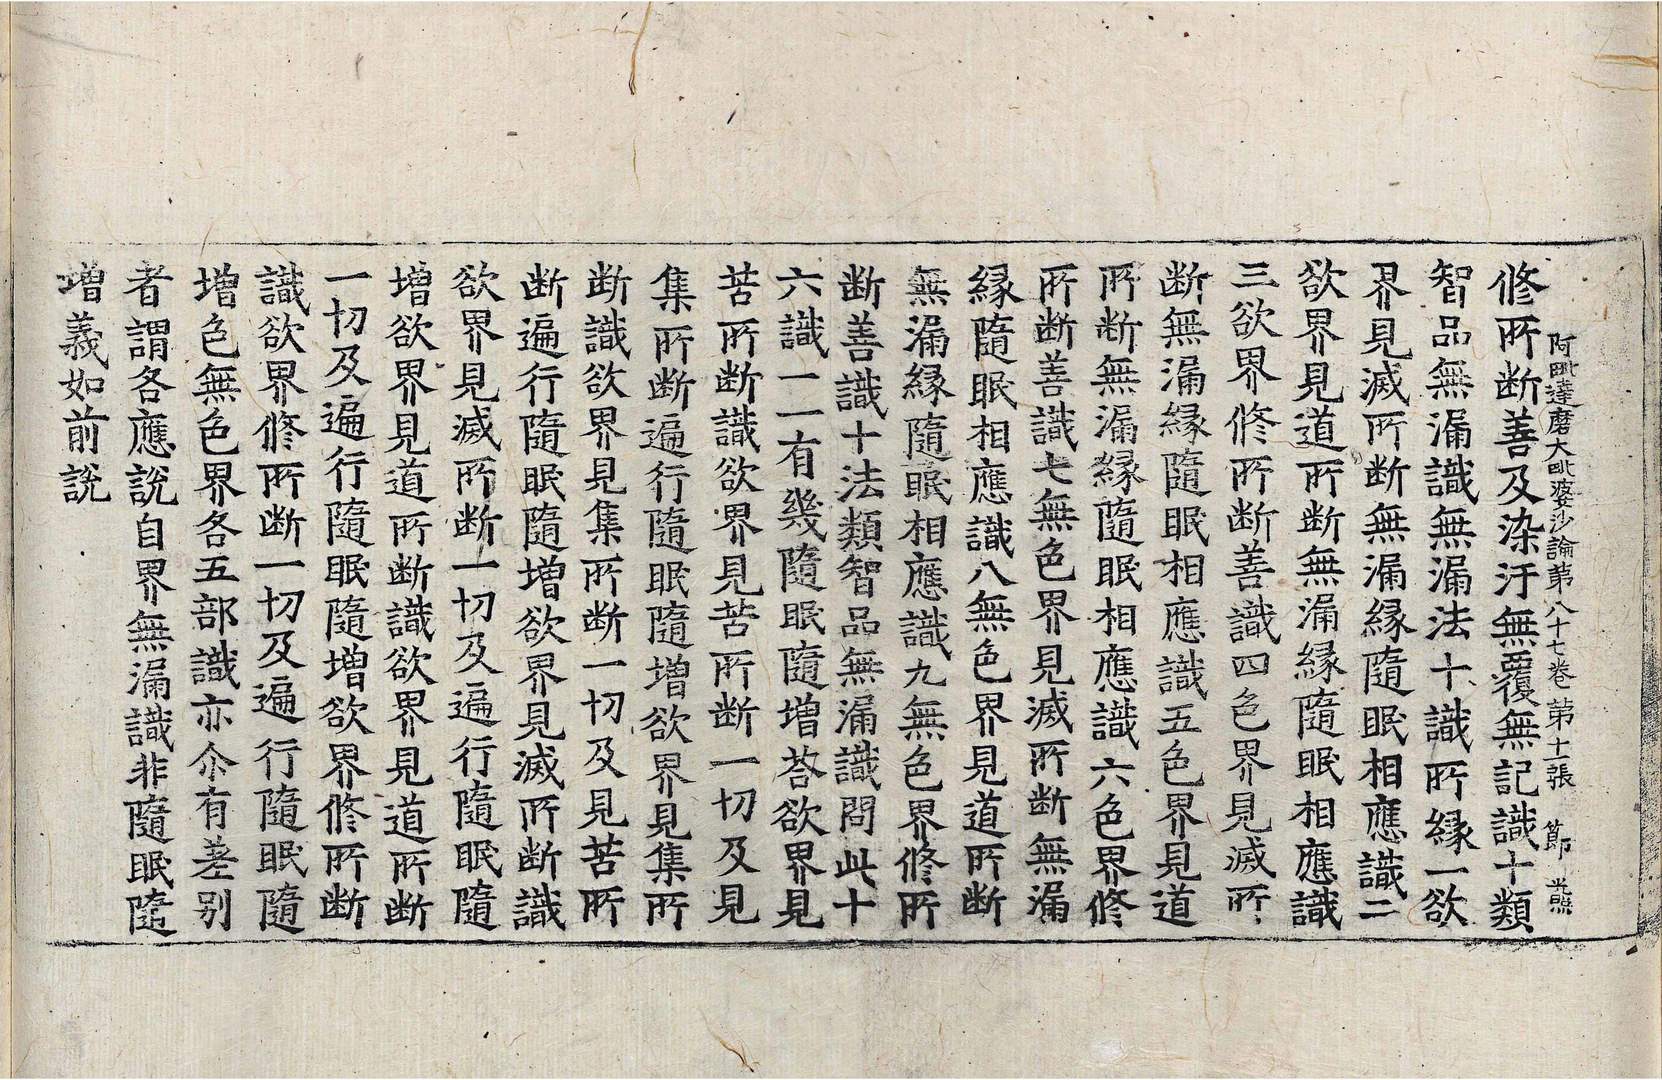 阿毗達磨大毗婆沙論第八十七卷 第十一張 節 光熙
修所断善及染汙無覆無記識十類
智品無漏識無漏法十識所縁一欲
界見滅所断無漏縁隨眠相應識二
欲界見道所断無漏縁隨眠相應識
三欲界修所断善識四色界見滅所
断無漏縁隨眠相應識五色界見道
所断無漏縁隨眠相應識六色界修
所断善識七無色界見滅所断無漏
縁隨眠相應識八無色界見道所断
無漏縁隨眠相應識九無色界修所
断善識十法類智品無漏識問此十
六識一一有幾隨眠隨增荅欲界見
苦所断識欲界見苦所断一切及見
集所断遍行隨眠隨增欲界見集所
断識欲界見集所断一切及見苦所
断遍行隨眠隨增欲界見滅所断識
欲界見滅所断一切及遍行隨眠隨
增欲界見道所断識欲界見道所断
一切及遍行隨眠隨增欲界修所断
識欲界修所断一切及遍行隨眠隨
增色無色界各五部識亦尒有差别
者謂各應說自界無漏識非隨眠隨
增義如前說